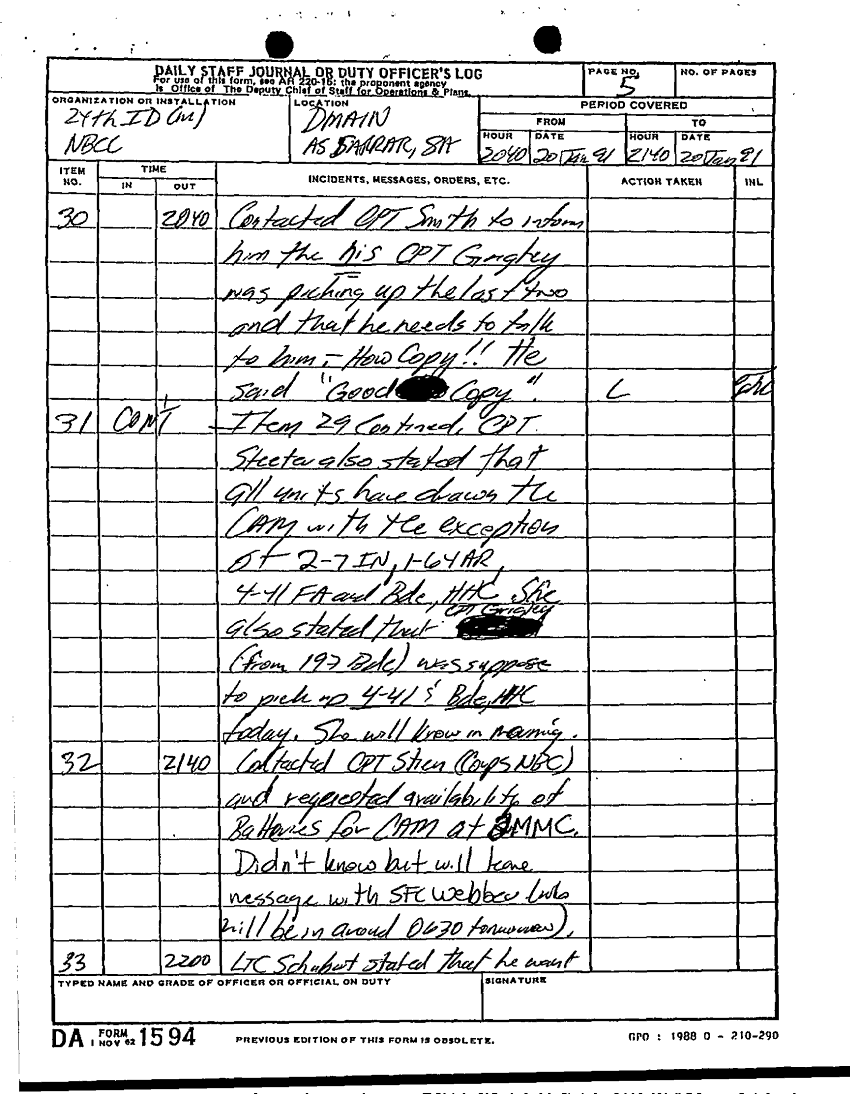 DAILY STAFF JOURNAL OR DUTY OFFICER'S LOG
For use of this form, see AR 220-15; the proponent agency
is Office of The Deputy Chief of Staff for Operations & Plans.
PAGE NO.
5
NO. OF PAGES
ORGANIZATION OR INSTALLATION
24th ID (M)
NBCC
LOCATION
DMAIN
AS SARRAR, SA
PERIOD COVERED
FROM
TO
HOUR
DATE
HOUR
DATE
2040
20 Jan 91
2140
20 Jan 91
ITEM NO.
TIME
IN
OUT
INCIDENTS, MESSAGES, ORDERS, ETC.
ACTION TAKEN
INL
30 2040 Contacted CPT Smith to inform
him the his CPT Grigley
was picking up the last two
and that he needs to talk
to him - How Copy!! He
said "Good Copy". L
31 CONT - Item 29 Contined, CPT.
also stated that
all units have drawn the
CAM with the exception
of 2-7 IN, 1-64 AR,
4-41 FA and Bde, HHC. She
CPT Grigley
also stated that
(from 197 Bde) was suppose
to pick up 4-41's Bde, HHC
today. She will know in morning.
32 2140 Contacted CPT (Corps NBC)
and requested availability of
Batteries for CAM at MMC.
Didn't know but will leave
message with SFC Webber (who
will be in around 0630 tomorrow).
33 2200 LTC Schubert stated that he want
TYPED NAME AND GRADE OF OFFICER OR OFFICIAL ON DUTY
SIGNATURE
DA FORM 1 NOV 62 1594
PREVIOUS EDITION OF THIS FORM IS OBSOLETE.
GPO : 1988 O - 210-290